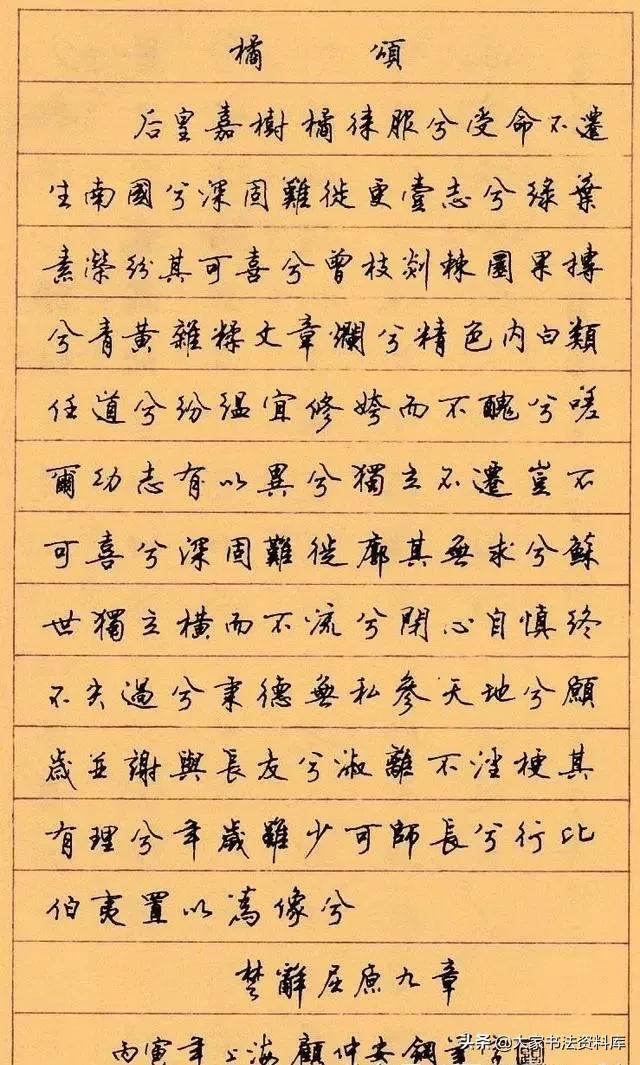 橘頌
后皇嘉樹橘徠服兮受命不遷
生南國兮深固難徙更壹志兮緑葉
素榮紛其可喜兮曾枝剡棘圜果摶
兮青黄雜糅文章爛兮精色内白類
任道兮紛緼宜修姱而不醜兮嗟
爾幼志有以異兮獨立不遷豈不
可喜兮深固難徙廓其無求兮蘇
世獨立橫而不流兮閉心自慎終
不失過兮秉德無私參天地兮願
歲並謝與長友兮淑離不淫梗其
有理兮年歲雖少可師長兮行比
伯夷置以為像兮
楚辭屈原九章
丙寅年上海顧仲安鋼筆字
头条@大家书法资料库